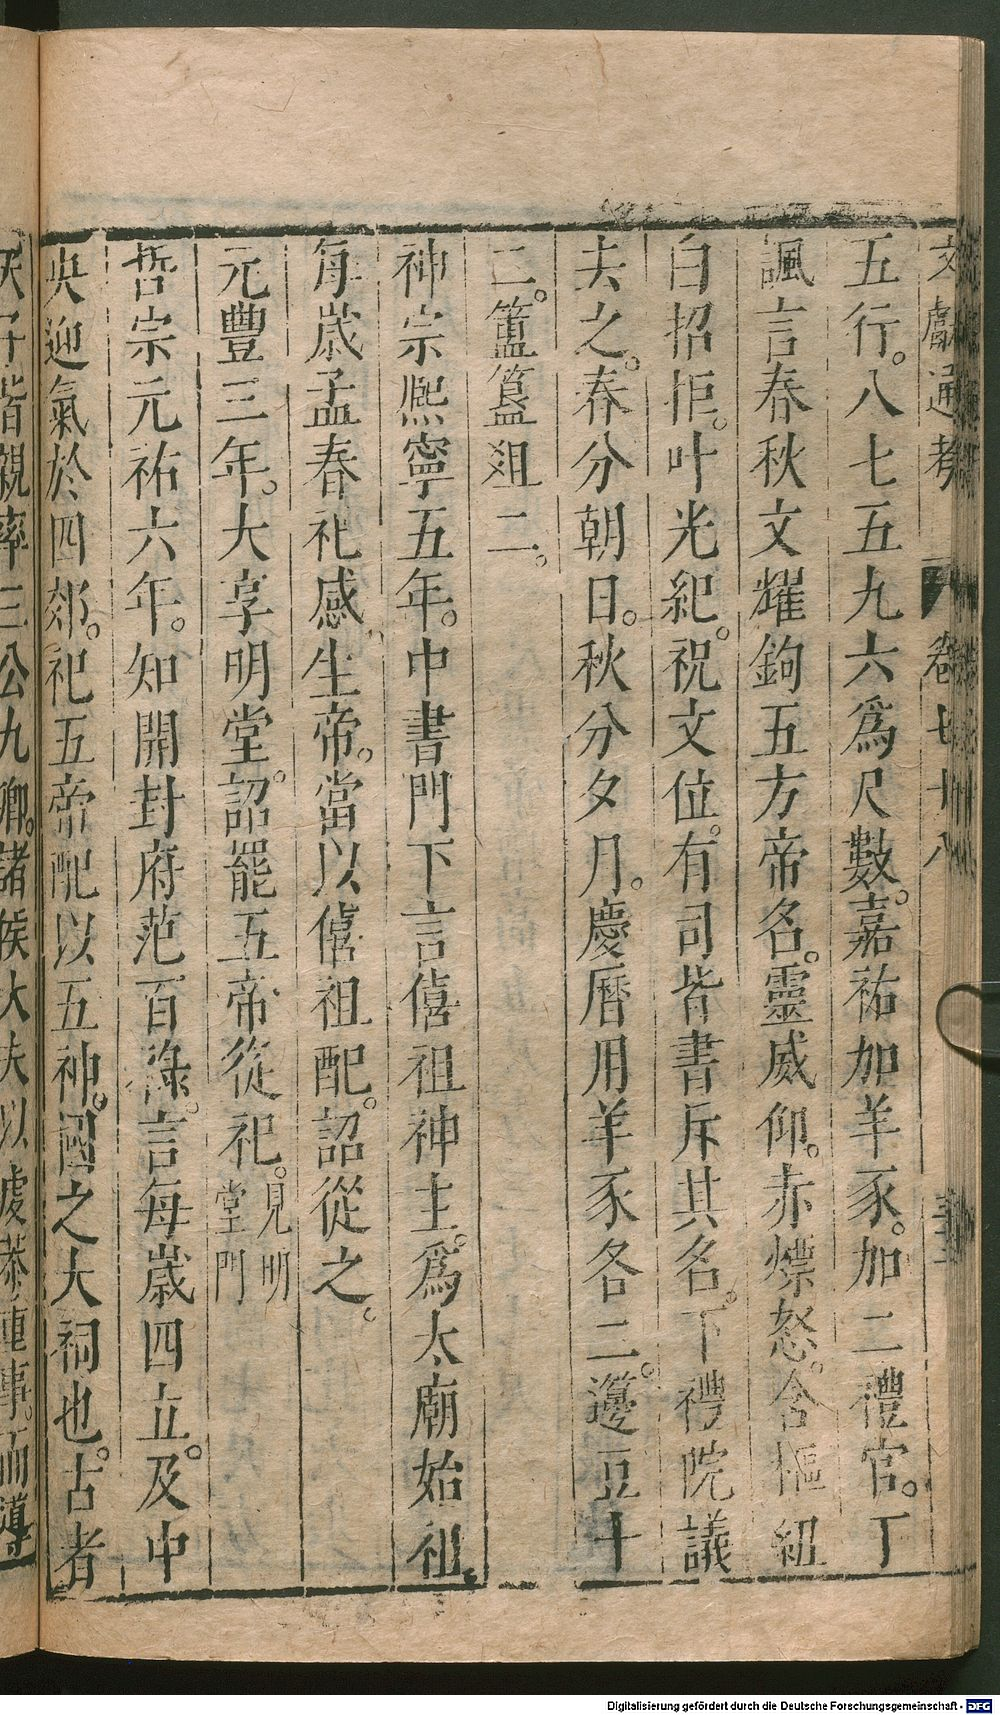 文獻通考 卷七十八
五行。八七五九六爲尺數。嘉祐加羊豕。加二禮官。丁
諷言春秋文耀鉤五方帝名。靈威仰。赤熛怒。含樞紐
白招拒。叶光紀。祝文位。有司皆書斥其名。下禮院議
去之。春分朝日。秋分夕月。慶曆用羊豕各二。籩豆十
二。簠簋俎二。
神宗熙寧五年。中書門下言僖祖神主。爲太廟始祖。
每歲孟春祀感生帝。當以僖祖配。詔從之。
元豐三年。大享明堂。詔罷五帝從祀。見明
堂門
哲宗元祐六年。知開封府范百祿。言每歲四立。及中
央迎氣於四郊。祀五帝配以五神。國之大祠也。古者
天子皆親率三公九卿。諸侯大夫以虔恭重事。而導
Digitalisierung gefördert durch die Deutsche Forschungsgemeinschaft - DFG